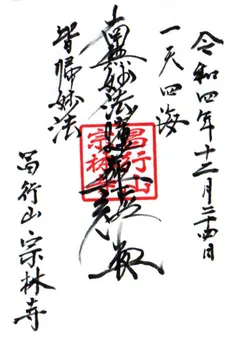 令和四年十二月二十四日
一天四海
南無妙法蓮華経
皆帰妙法
昌行山宗林寺
昌行山
宗林寺